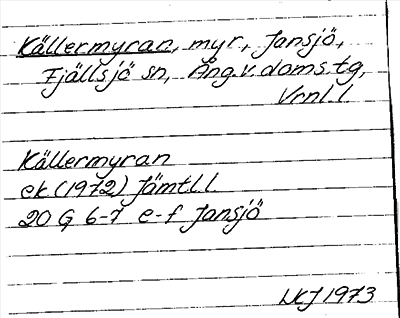 Källermyran, myr, Jansjö,
Fjällsjö sn, Ång.v.doms.tg,
Vrnl.l
Källermyran
ek (1972) Jämtl.l.
20 G 6-7 e-f Jansjö
1973